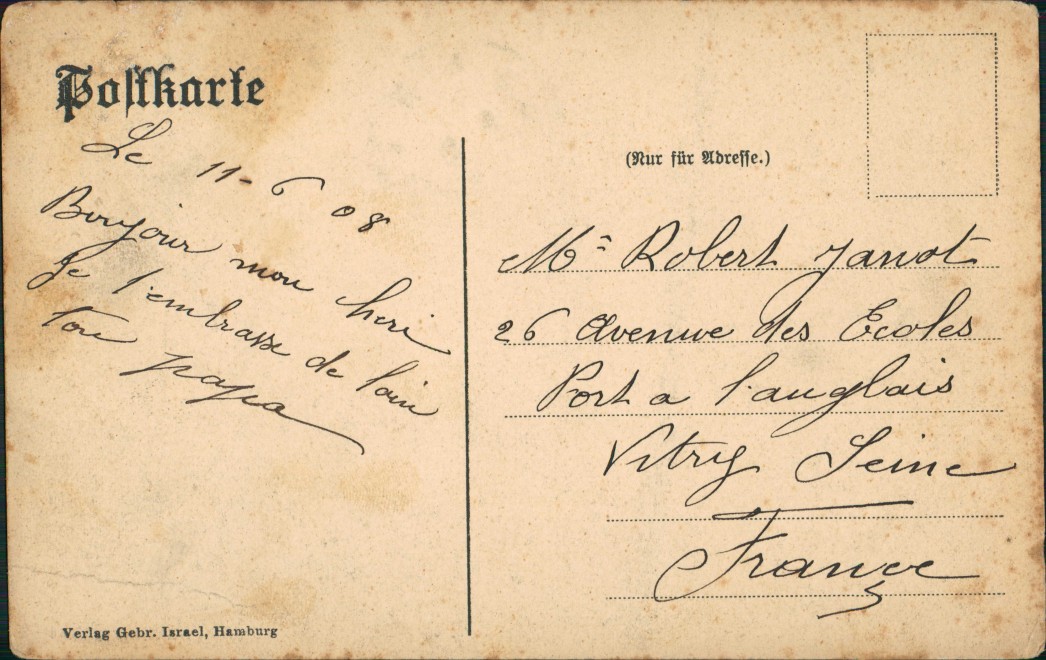 Postkarte
Le 11-6 08
Bonjour mon heri
Je t'embrasse de loin
ton papa
Verlag Gebr. Israel, Hamburg
(Nur für Adresse.)
Mr Robert Janot
26 Avenue des Ecoles
Port a l'anglais
Vitry Seine
France